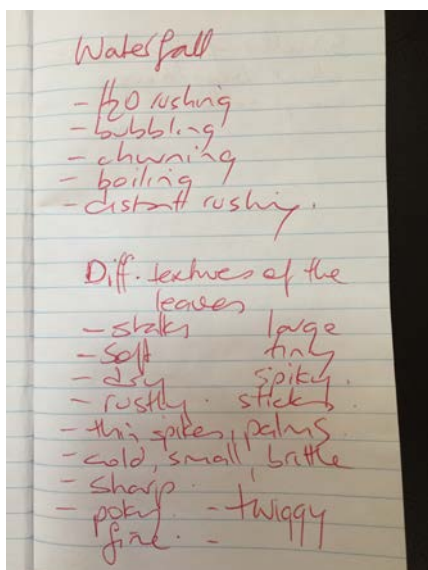 Waterfall
- H2O rushing
- bubbling
- churning
- boiling
- distant rushing.
Diff. textures of the
leaves
- stalks large
- soft tiny
- dry spiky.
- rustly. sticks
- thin spikes, palms.
- cold, small, brittle
- sharp.
- poky. - twiggy
fine. -